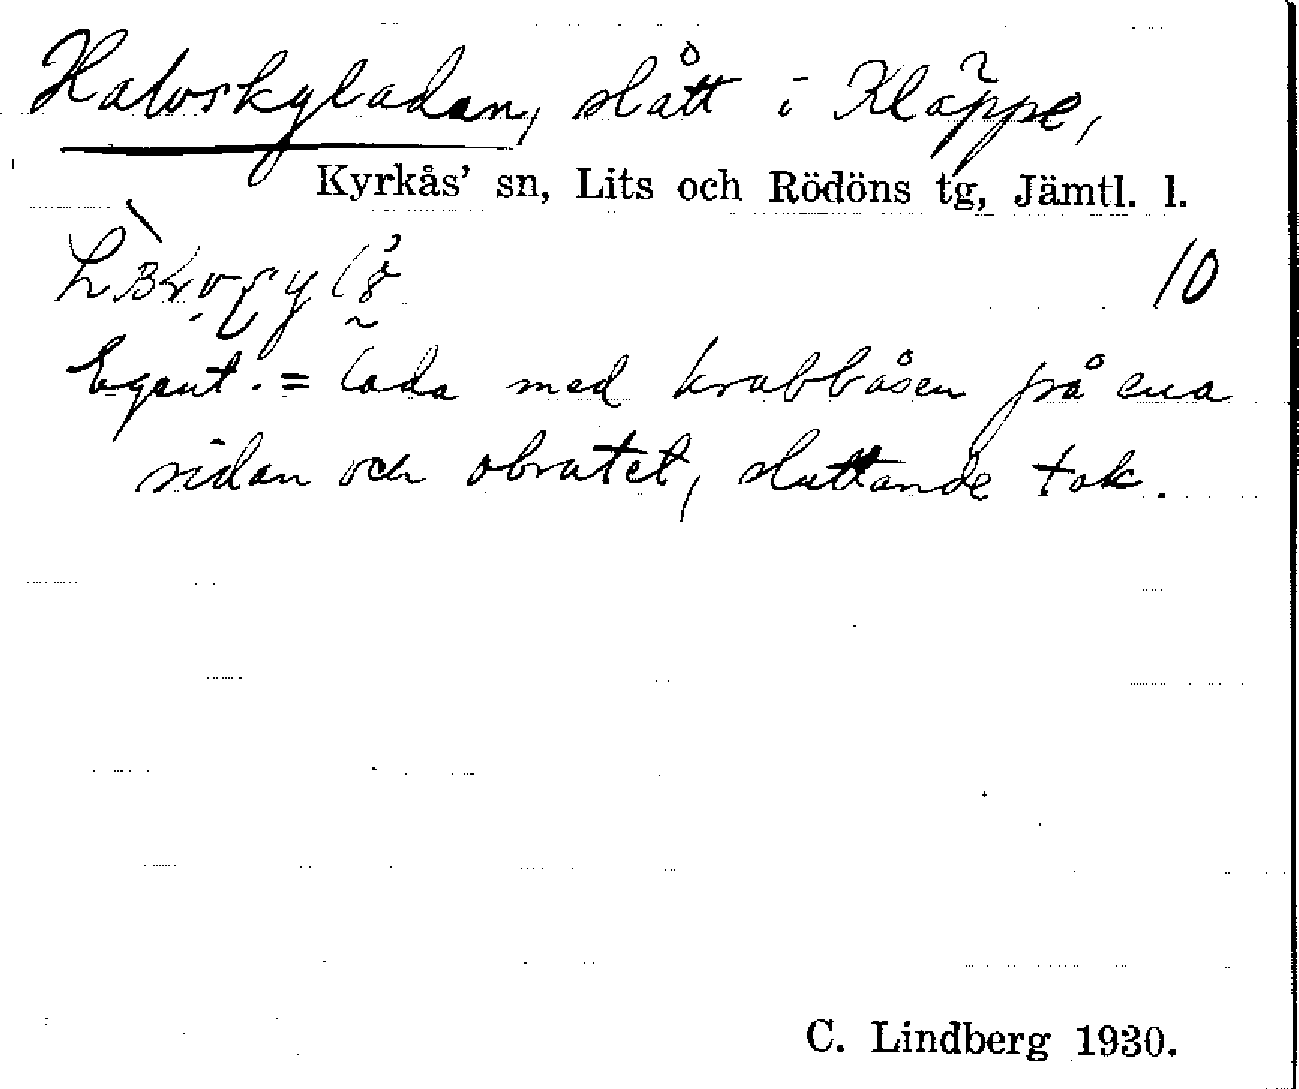 Halvskyladan, slått i Kläppe,
Kyrkås' sn, Lits och Rödöns tg, Jämtl. l.
10
Egent. = lada med krabbåsen på ena
sidan och obrutet, sluttande tak.
C. Lindberg 1930.